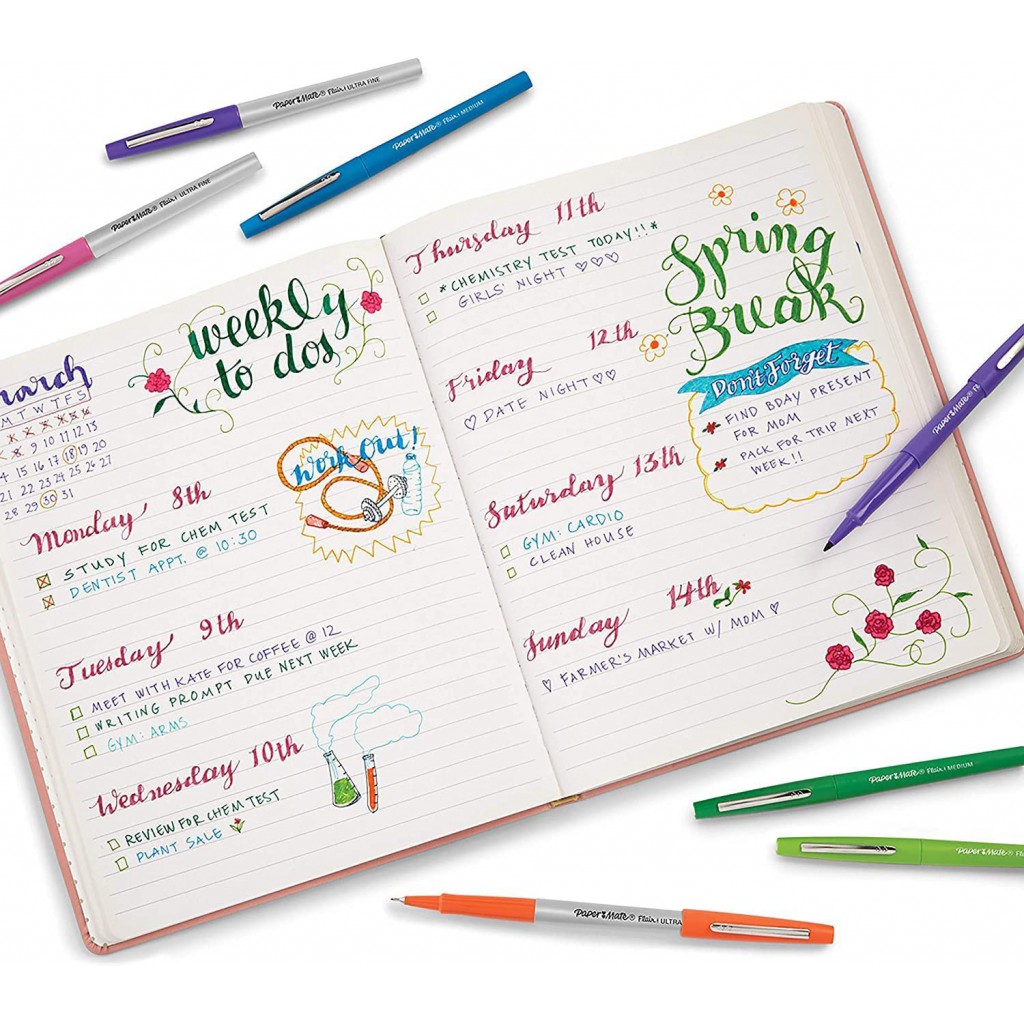 Paper Mate® Flair | ULTRA FINE
Paper Mate® Flair | MEDIUM
Paper Mate® Flair | ULTRA FINE
weekly
to dos
march
M T W T F S
9 10 11 12 13
15 16 17 18 19 20
21 22 23 24 25 26 27
28 29 30 31
work out!
Monday 8th
STUDY FOR CHEM TEST
DENTIST APPT. @ 10:30
Tuesday 9th
MEET WITH KATE FOR COFFEE @ 12
WRITING PROMPT DUE NEXT WEEK
GYM: ARMS
Wednesday 10th
REVIEW FOR CHEM TEST
PLANT SALE
Thursday 11th
*CHEMISTRY TEST TODAY!!*
GIRLS' NIGHT ♡♡♡
Friday 12th
♡ DATE NIGHT ♡♡
Saturday 13th
GYM: CARDIO
CLEAN HOUSE
Sunday 14th
♡ FARMER'S MARKET W/ MOM ♡
Spring
Break
Don't Forget
FIND BDAY PRESENT
FOR MOM
PACK FOR TRIP NEXT
WEEK!!
Paper Mate®
Paper Mate® Flair | MEDIUM
Paper Mate® Flair
Paper Mate® Flair | ULTRA